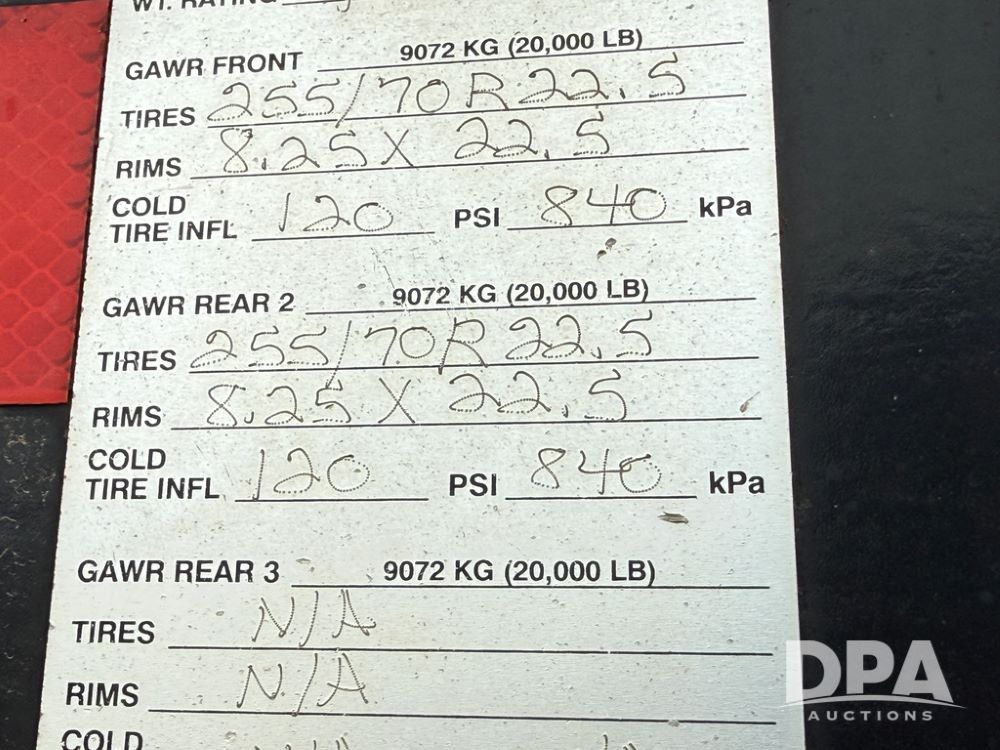 WT. RATING
GAWR FRONT 9072 KG (20,000 LB)
TIRES 255/70R22.5
RIMS 8.25 X 22.5
COLD
TIRE INFL 120 PSI 840 kPa
GAWR REAR 2 9072 KG (20,000 LB)
TIRES 255/70R22.5
RIMS 8.25 X 22.5
COLD
TIRE INFL 120 PSI 840 kPa
GAWR REAR 3 9072 KG (20,000 LB)
TIRES N/A
RIMS N/A
COLD
DPA
AUCTIONS